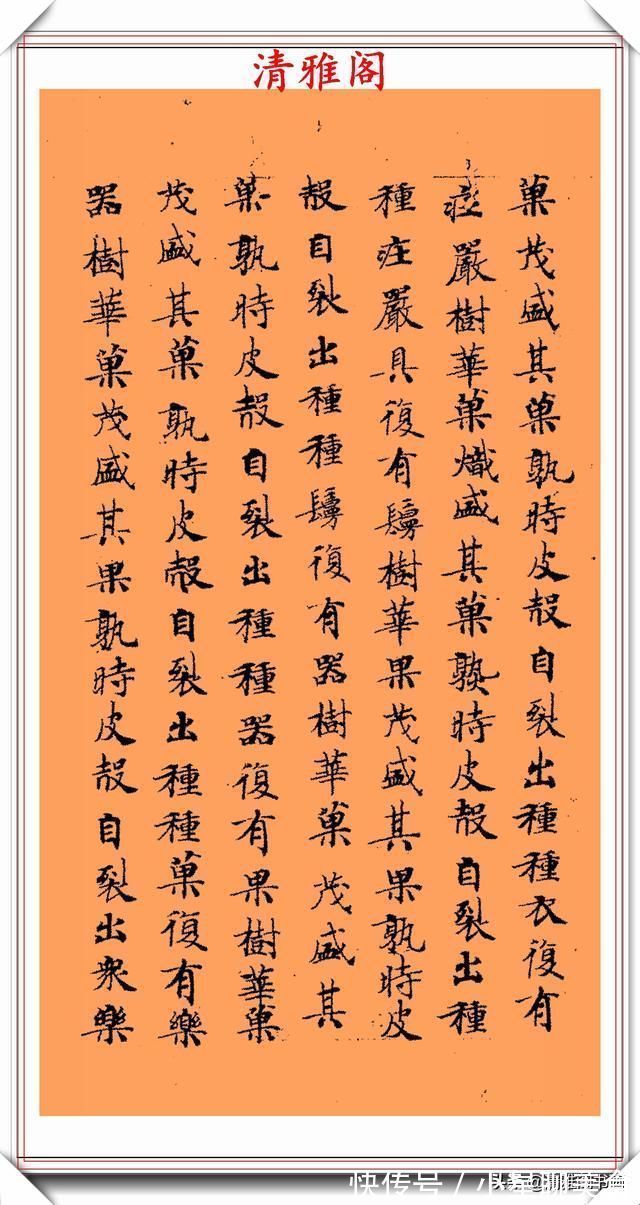 清雅阁
菓茂盛其菓孰時皮殼自裂出種種衣復有
莊嚴樹華菓熾盛其菓孰時皮殼自裂出種
種莊嚴具復有鬘樹華果茂盛其果孰時皮
殼自裂出種種鬘復有器樹華菓茂盛其
菓孰時皮殼自裂出種種器復有果樹華菓
茂盛其菓孰時皮殼自裂出種種菓復有樂
器樹華菓茂盛其果孰時皮殼自裂出衆樂
快传号/小星聊美食